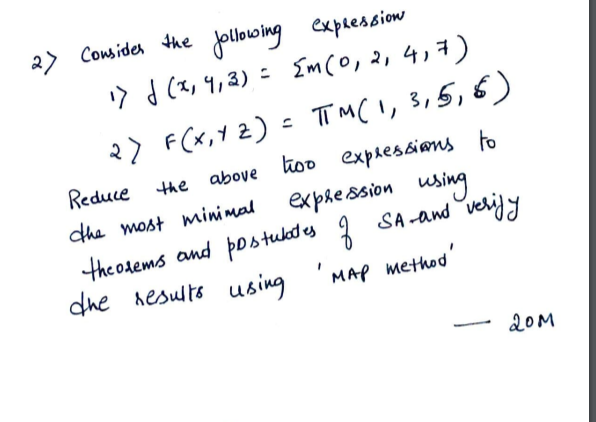 2) Consider the following expression
1) f (x, y, z) = Σm(0, 2, 4, 7)
2) F(x, Y Z) = ΠM(1, 3, 5, 6)
Reduce the above two expressions to
the most minimal expression using
theorems and postulates of SA and verify
the results using 'MAP method'
— 20M